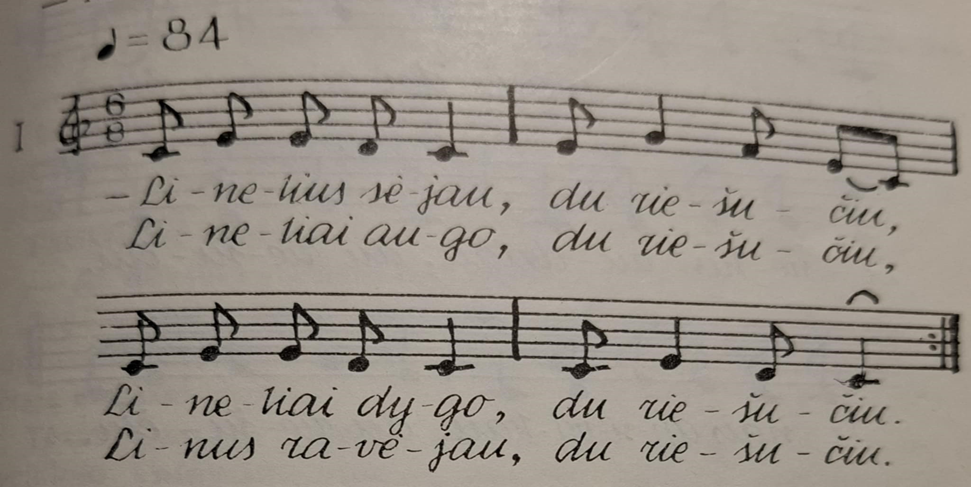 ♩= 84
I
6
8
– Li - ne - lius sė - jau, du rie - šu - čiu,
Li - ne - liai au - go, du rie - šu - čiu,
Li - ne - liai dy - go, du rie - šu - čiu.
Li - nus ra - vė - jau, du rie - šu - čiu.